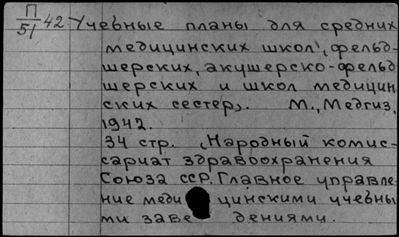 П
51
42 Учебные планы для средних
медицинских школ, фельд-
шерских, акушерско-фельд
шерских и школ медицин
ских сестер. М., Медгиз,
1942.
34 стр. (Народный комис-
сариат здравоохранения
Союза ССР. Главное управле-
ние меди цинскими учебны
ми заве дениями.